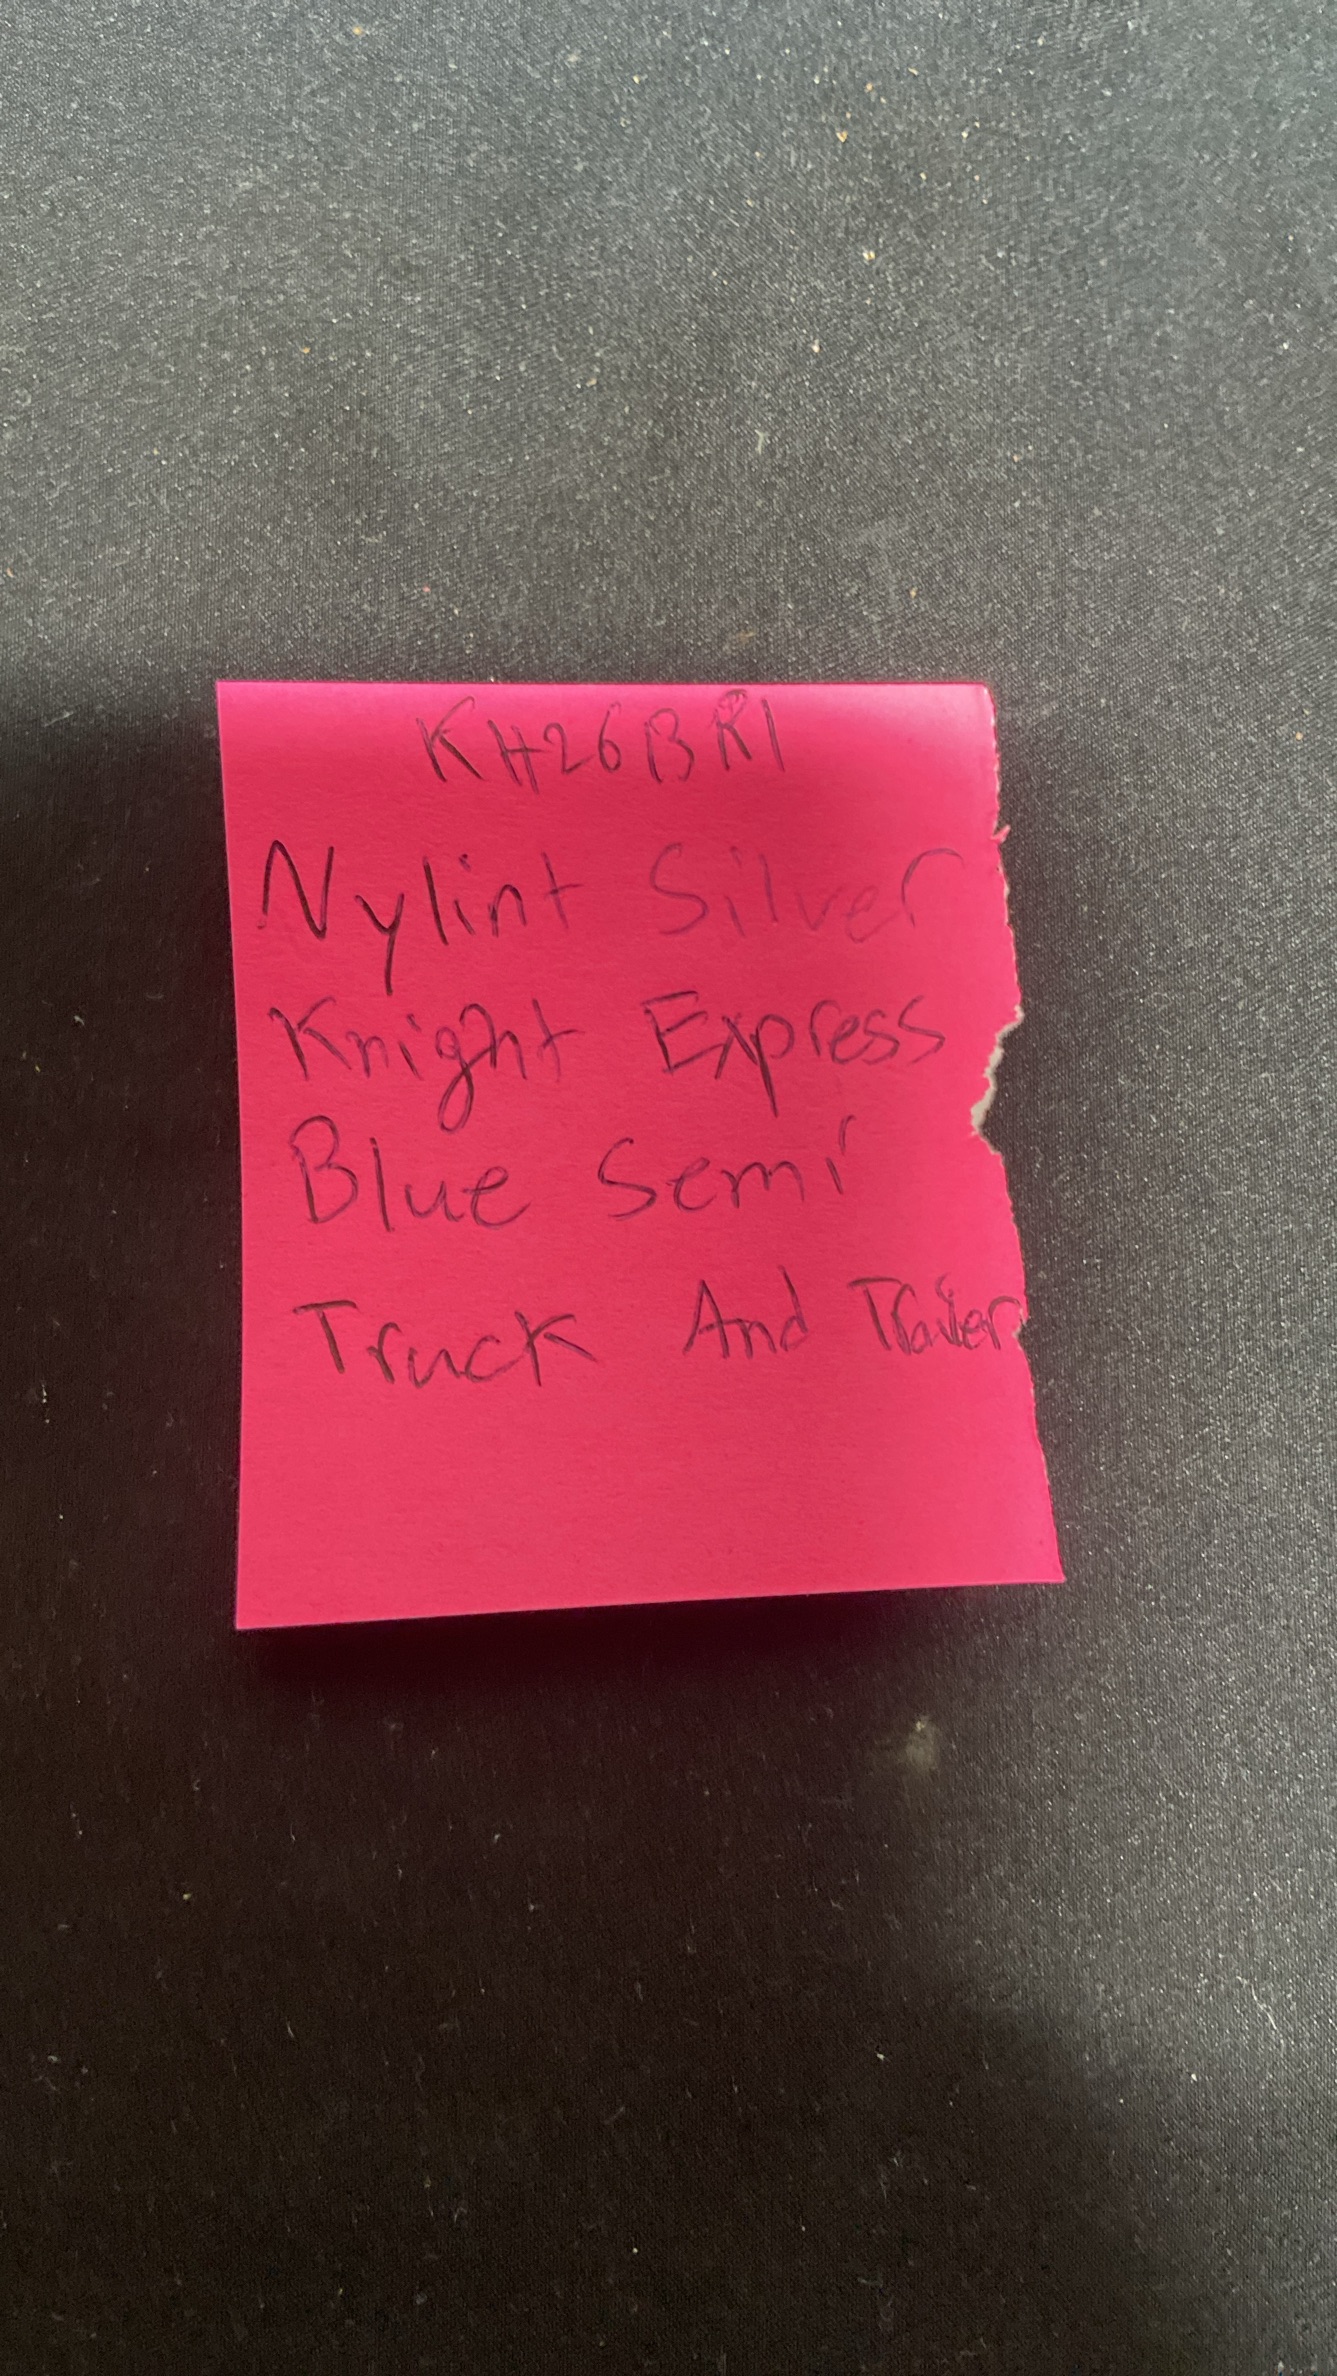 KH26BR1
Nylint Silver
Knight Express
Blue Semi
Truck And Trailer